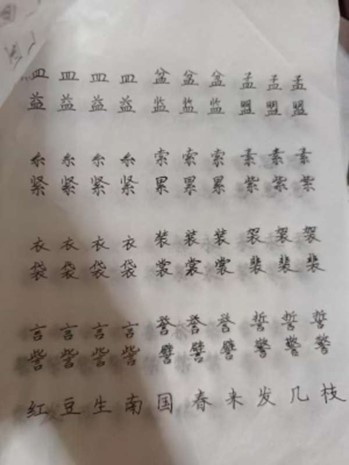 皿皿皿皿盆盆盆孟孟孟
益益益益监监监盟盟盟
糸糸糸糸索索索素素素
紧紧紧紧累累累紫紫紫
衣衣衣衣装装装袈袈袈
袋袋袋袋裳裳裳裴裴裴
言言言言誉誉誉誓誓誓
訾訾訾訾譬譬譬警警警
红豆生南国春来发几枝